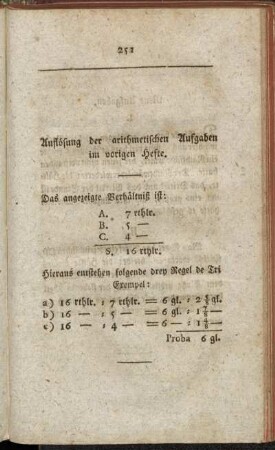 251
Auflösung der arithmetischen Aufgaben
im vorigen Hefte.
Das angezeigte Verhältniß ist:
A. 7 rthlr.
B. 5 —
C. 4 —
S. 16 rthlr.
Hieraus entstehen folgende drey Regel de Tri
Exempel:
a) 16 rthlr. : 7 rthlr. = 6 gl. : 2 5/8 gl.
b) 16 — : 5 — = 6 — : 1 7/8 —
c) 16 — : 4 — = 6 — : 1 4/8 —
Proba 6 gl.